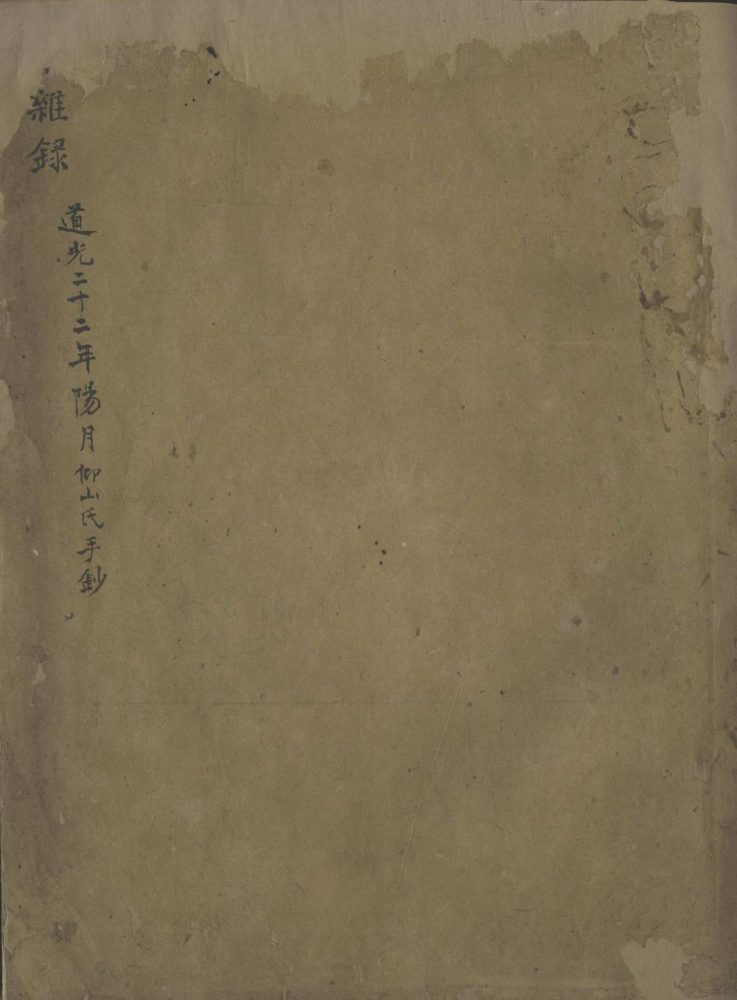 雜錄
道光二十二年陽月仰山氏手鈔